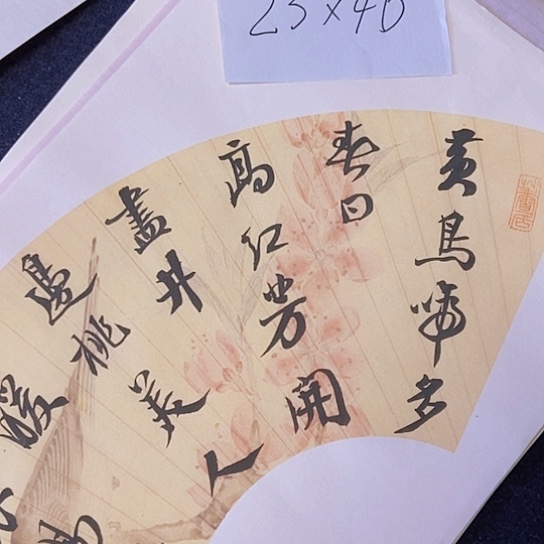 25×40
黃鳥啼多
春日
高紅芳開
盡井
邊桃美人
暖